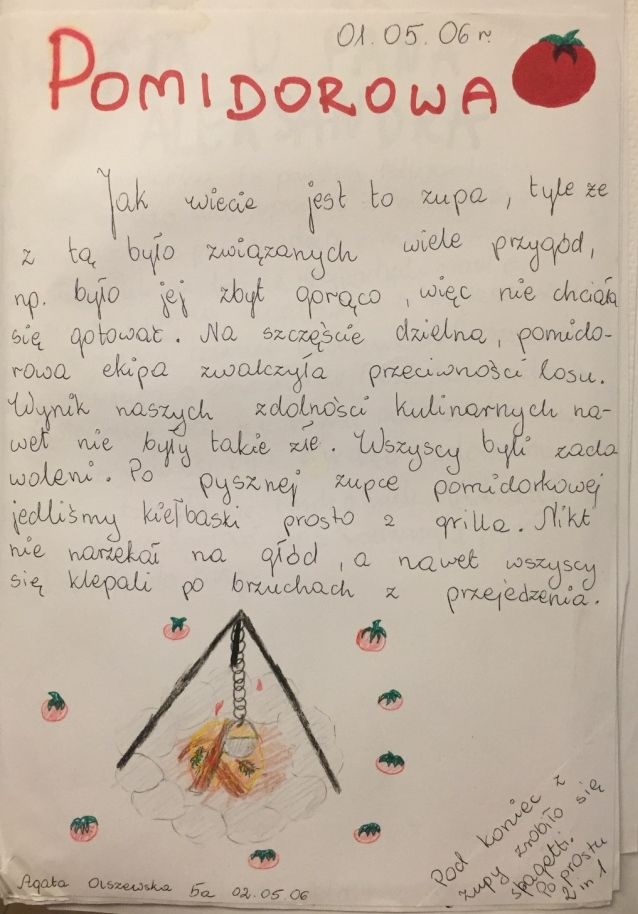 01.05.06 r.
POMIDOROWA
Jak wiecie jest to zupa, tyle że
z tą było związanych wiele przygód,
np. było jej zbyt gorąco, więc nie chciała
się gotować. Na szczęście dzielna, pomido-
rowa ekipa zwalczyła przeciwności losu.
Wynik naszych zdolności kulinarnych na-
wet nie były takie złe. Wszyscy byli zado
woleni. Po pysznej zupce pomidorkowej
jedliśmy kiełbaski prosto z grilla. Nikt
nie narzekał na głód, a nawet wszyscy
się klepali po brzuchach z przejedzenia.
Pod koniec z
zupy zrobiło się
spagetti.
Po prostu
2 in 1
Agata Olszewska 5a 02.05.06